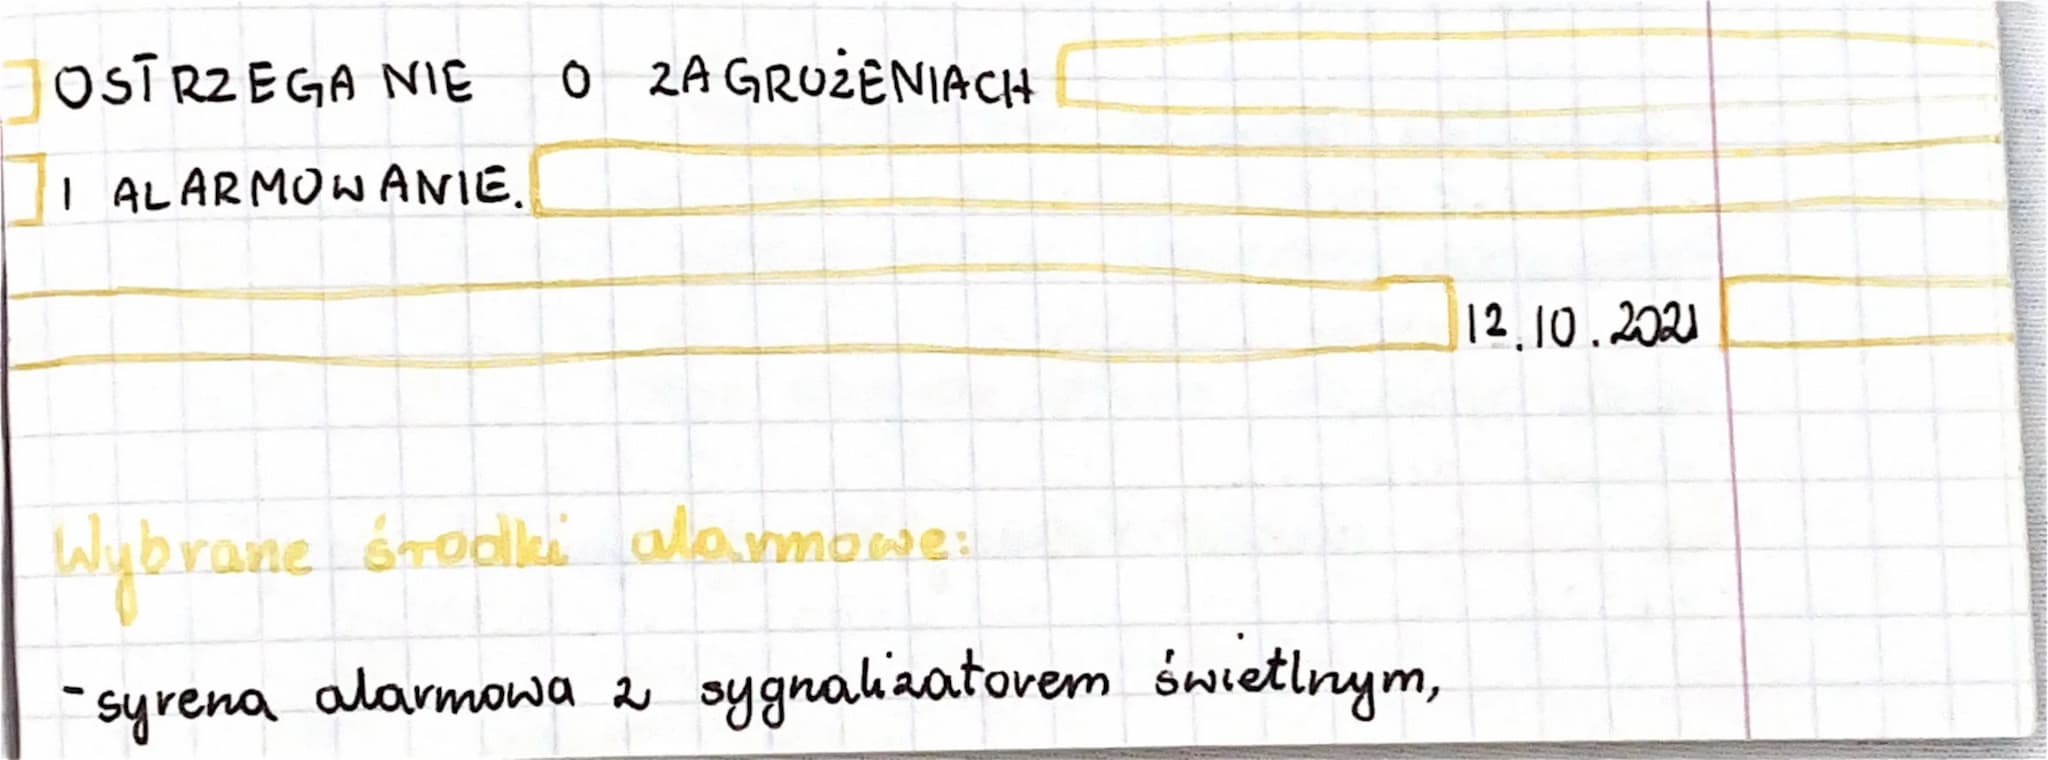 OSTRZEGANIE O ZAGROŻENIACH
I ALARMOWANIE.
12.10.2021
Wybrane środki alarmowe:
- syrena alarmowa z sygnalizatorem świetlnym,